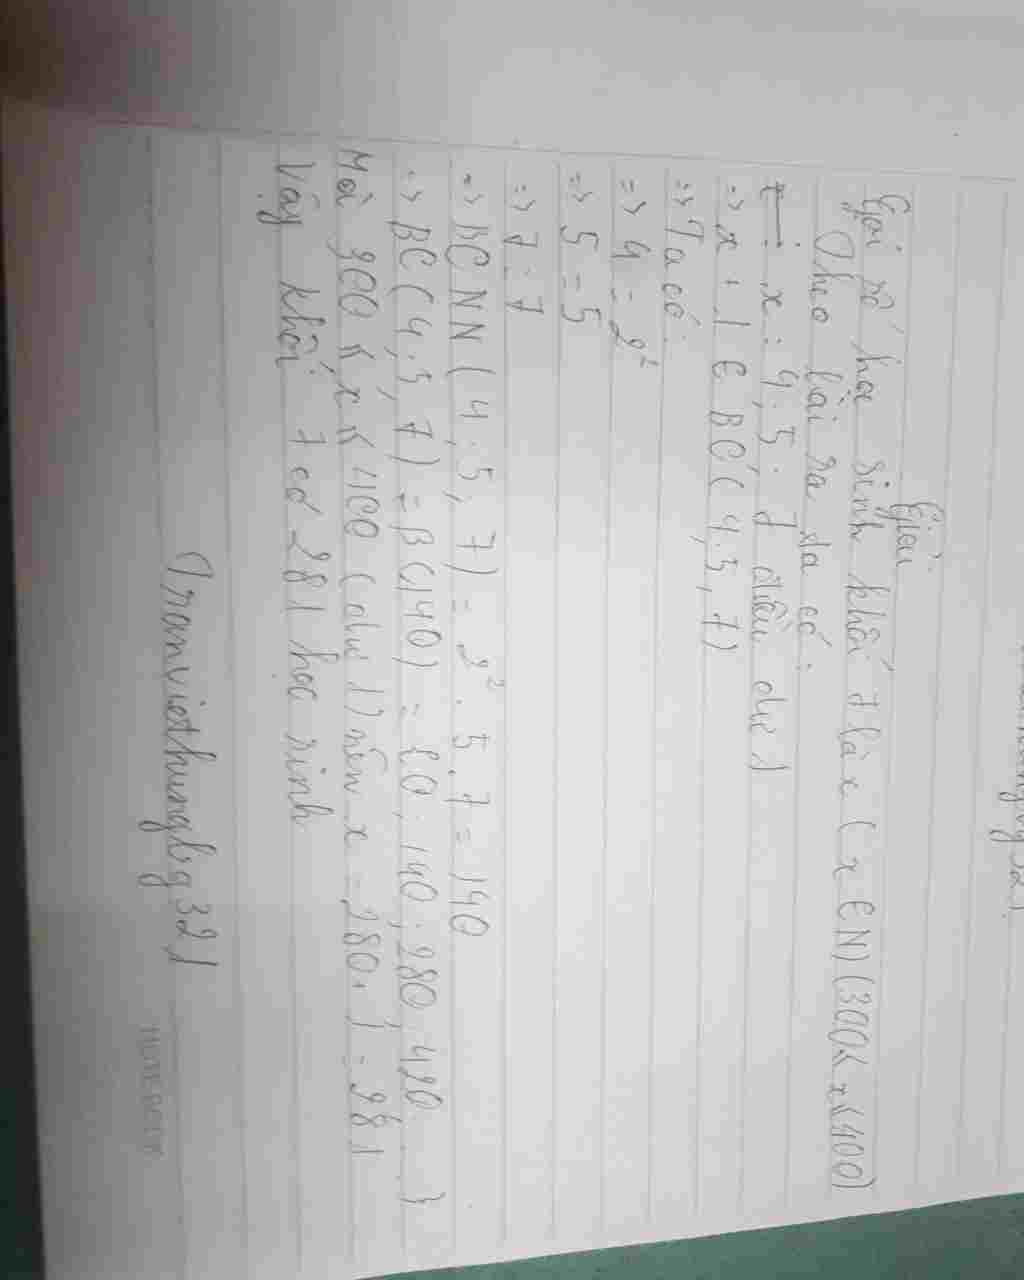 Giải
Gọi số học sinh khối 7 là x ( x ∈ N) (300 < x < 400)
Theo bài ra ta có:
x : 4, 5, 7 đều dư 1
=> x - 1 ∈ BC( 4, 5, 7)
=> Ta có
=> 4 = 2²
=> 5 = 5
=> 7 = 7
=> BCNN ( 4, 5, 7) = 2² . 5 . 7 = 140
=> BC ( 4, 5, 7) = B (140) = {0; 140; 280; 420 ... }
Mà 300 < x < 400 (dư 1) nên x = 280 + 1 = 281
Vậy khối 7 có 281 học sinh
Tranviethunglxg321